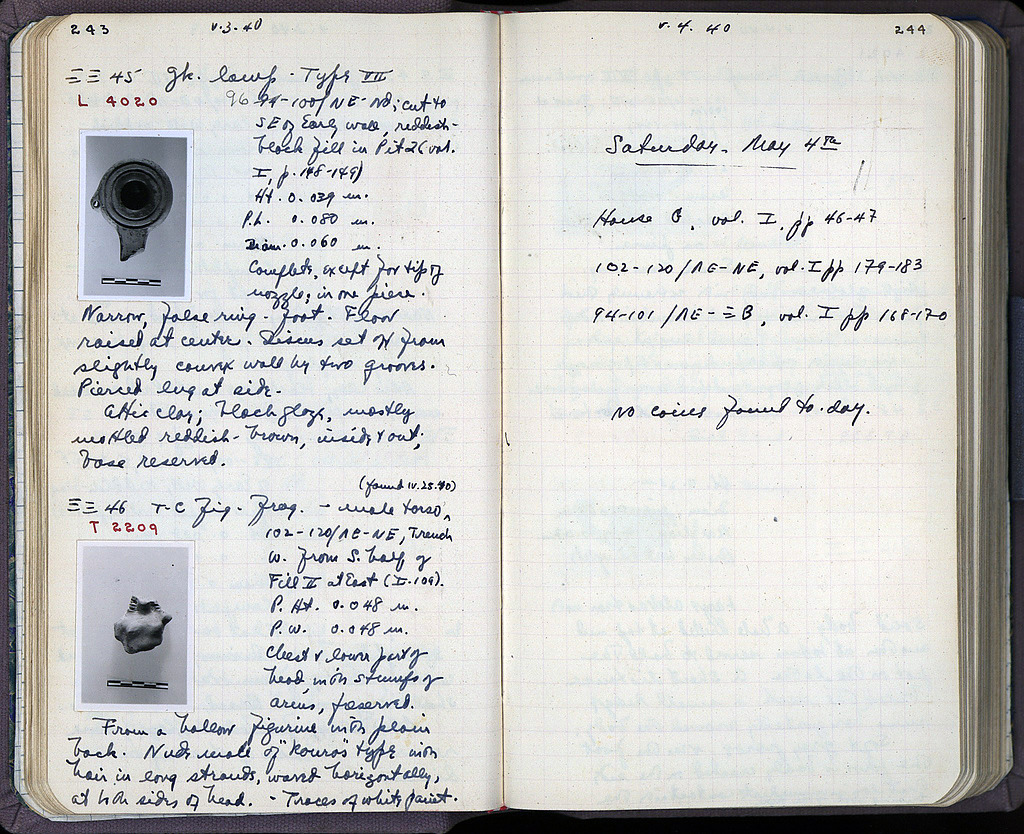 243
v.3.40
ΞΞ 45 Gk. lamp - Type VII
L 4020
96 94-100/ΝΕ-ΝΔ; cut to
SE of Early wall, reddish-
black fill in Pit 26 (vol.
I, p. 148-149)
Ht. 0.039 m.
P.L. 0.080 m.
Diam. 0.060 m.
Complete, except for tip of
nozzle; in one piece.
Narrow, false ring-foot. Floor
raised at center. Discus set off from
slightly convex wall by two grooves.
Pierced lug at side.
Attic clay; black glaze, mostly
mottled reddish-brown, inside & out;
base reserved.
(found IV.25.40)
ΞΞ 46 T-C Fig. Frag. - male torso,
T 2209
102-120/ΛΕ-ΝΕ, Trench
W. From S. half of
Fill II at East (I.109).
P. Ht. 0.048 m.
P.W. 0.048 m.
Chest & lower part of
head, with stumps of
arms, preserved.
From a hollow figurine with plain
back. Nude male of "kouros" type with
hair in long strands, waved horizontally,
at both sides of head. - Traces of white paint.
v.4.40
244
Saturday, May 4th
House G, vol. I, pp 46-47
102-120/ΛΕ-ΝΕ, vol. I pp 179-183
94-101/ΛΕ-ΞΒ, vol. I pp 168-170
No coins found to-day.